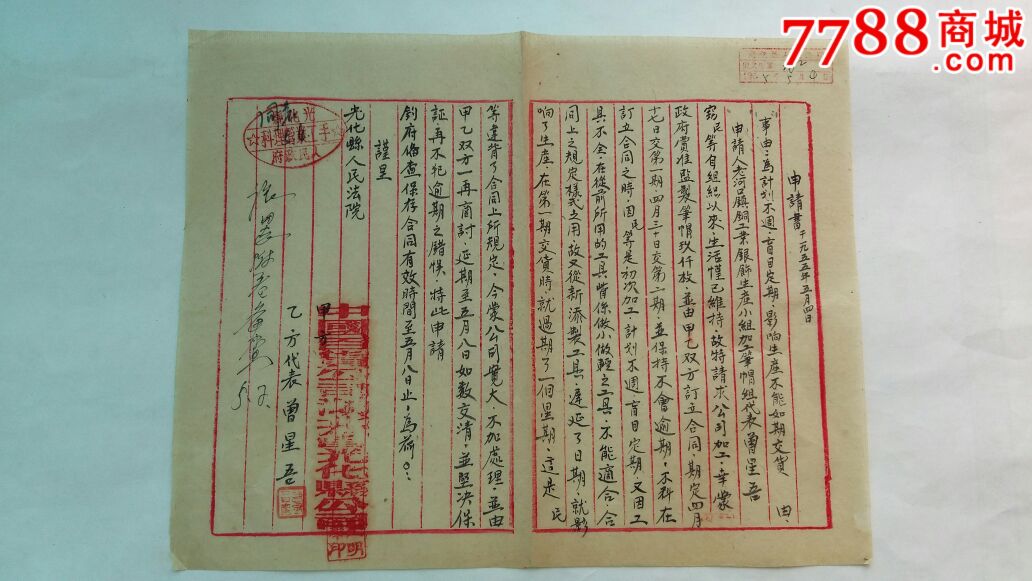 7788商城
.com
申請書 于一九五五年五月四日
事由:為計划不週,盲目定期,影响生產不能如期交貨 由、
申請人老河口鎮銅工業銀飾生產小組加工筆帽組代表曾星吾
窃民等自組织以來,生活僅已維持,故特請求公司加工,幸蒙
政府費准監製筆帽玖仟枚,並由甲乙双方訂立合同,期定四月
十七日交第一期,四月三十日交第二期,並保持不會逾期,不料在
訂立合同之時,因民等是初次加工,計划不週,盲目定期,又因工
具不全,在從前所用的工具,皆係做小做輕之工具,不能適合合
同上之規定樣式之用,故又從新添製工具,遲延了日期,就影
响了生產,在第一期交貨時,就過期了一個星期,這是民
等違背了合同上所規定,今蒙公司寬大,不加處理,並由
甲乙双方一再商討,延期至五月八日如数交清,並堅决保
証,再不犯逾期之錯悮,特此申請
鈞府俻查保存合同有效時間至五月八日止,為荷。:
謹呈
光化縣人民法院
甲方
中國百貨公司湖北省光化縣公司
乙方代表 曾星吾
5.2.